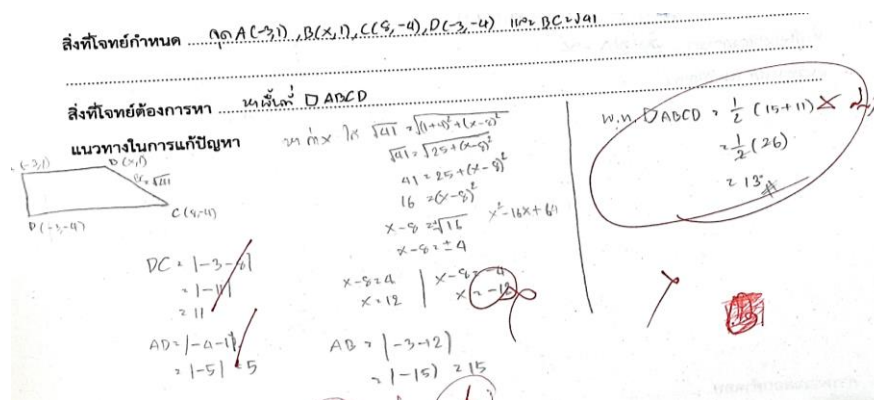 สิ่งที่โจทย์กำหนด จุด A(-3,1) , B(x,1), C(8,-4), D(-3,-4) และ BC=√41
สิ่งที่โจทย์ต้องการหา หาพื้นที่ □ ABCD
แนวทางในการแก้ปัญหา
(-3,1)
B(x,1)
BC=√41
D(-3,-4)
C(8,-4)
DC = |-3-8|
= |-11|
= 11
AD = |-4-1|
= |-5| = 5
หาค่า x ได้ √41 = √(1+4)²+(x-8)²
√41 = √25+(x-8)²
41 = 25+(x-8)²
16 = (x-8)²
x-8 = ±√16 x²-16x+64
x-8 = ±4
x-8=4 | x-8=-4
x=12 | x=-12
AB = |-3-12|
= |-15| = 15
พ.ท. □ABCD = 1/2 (15+11)
= 1/2 (26)
= 13